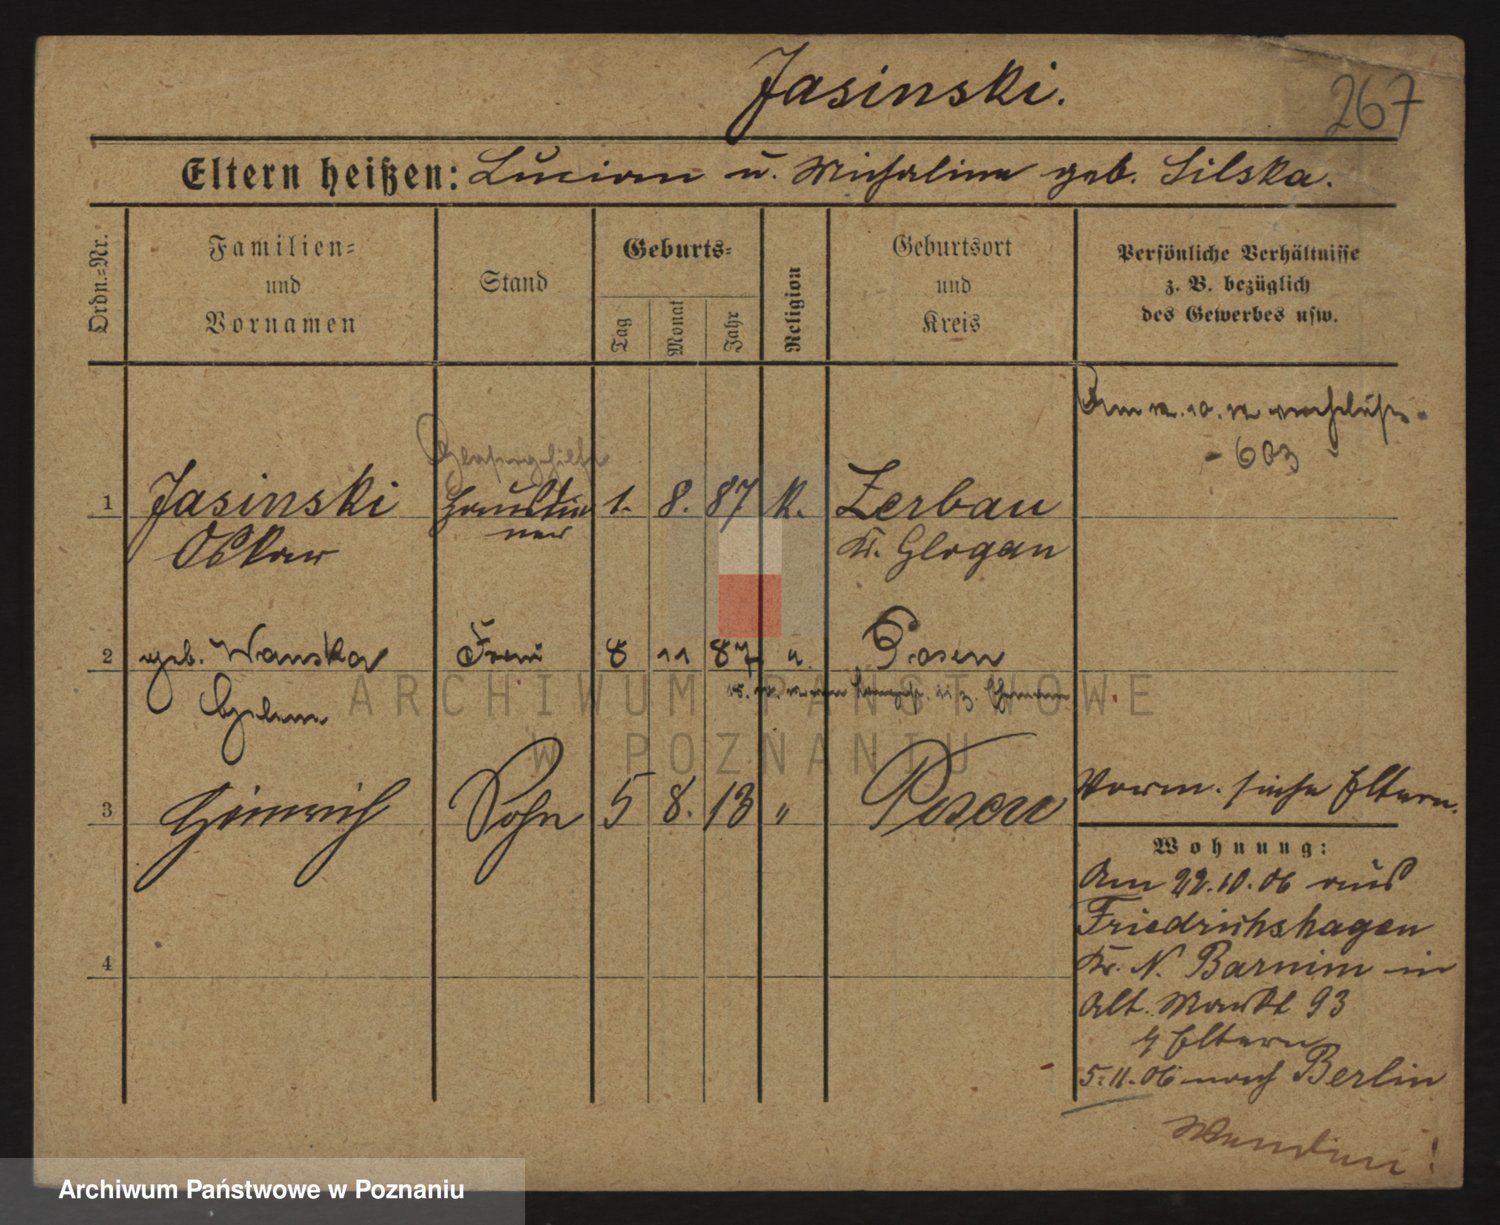 Jasinski.
267
Eltern heißen: Lucian u. Michalina geb. Silska.
Ordn.-Nr.
Familien-
und
Vornamen
Stand
Geburts-
Tag
Monat
Jahr
Religion
Geburtsort
und
Kreis
Persönliche Verhältnisse
z. B. bezüglich
des Gewerbes usw.
Am
603
1 Jasinski 1. 8. 87 k. Zerbau
Oskar Kr. Glogau
2 geb. Wanska Frau 8 11 87 " Posen
Helene
3 Heinrich Sohn 5 8. 13 " Posen
Vorm. siehe Eltern.
Wohnung:
Am 22.10.06 aus
Friedrichshagen
Kr. N. Barnim in
4
Alt. Markt 93
Eltern
5.11.06 nach Berlin
Wenden!
ARCHIWUM PAŃSTWOWE
W POZNANIU
Archiwum Państwowe w Poznaniu